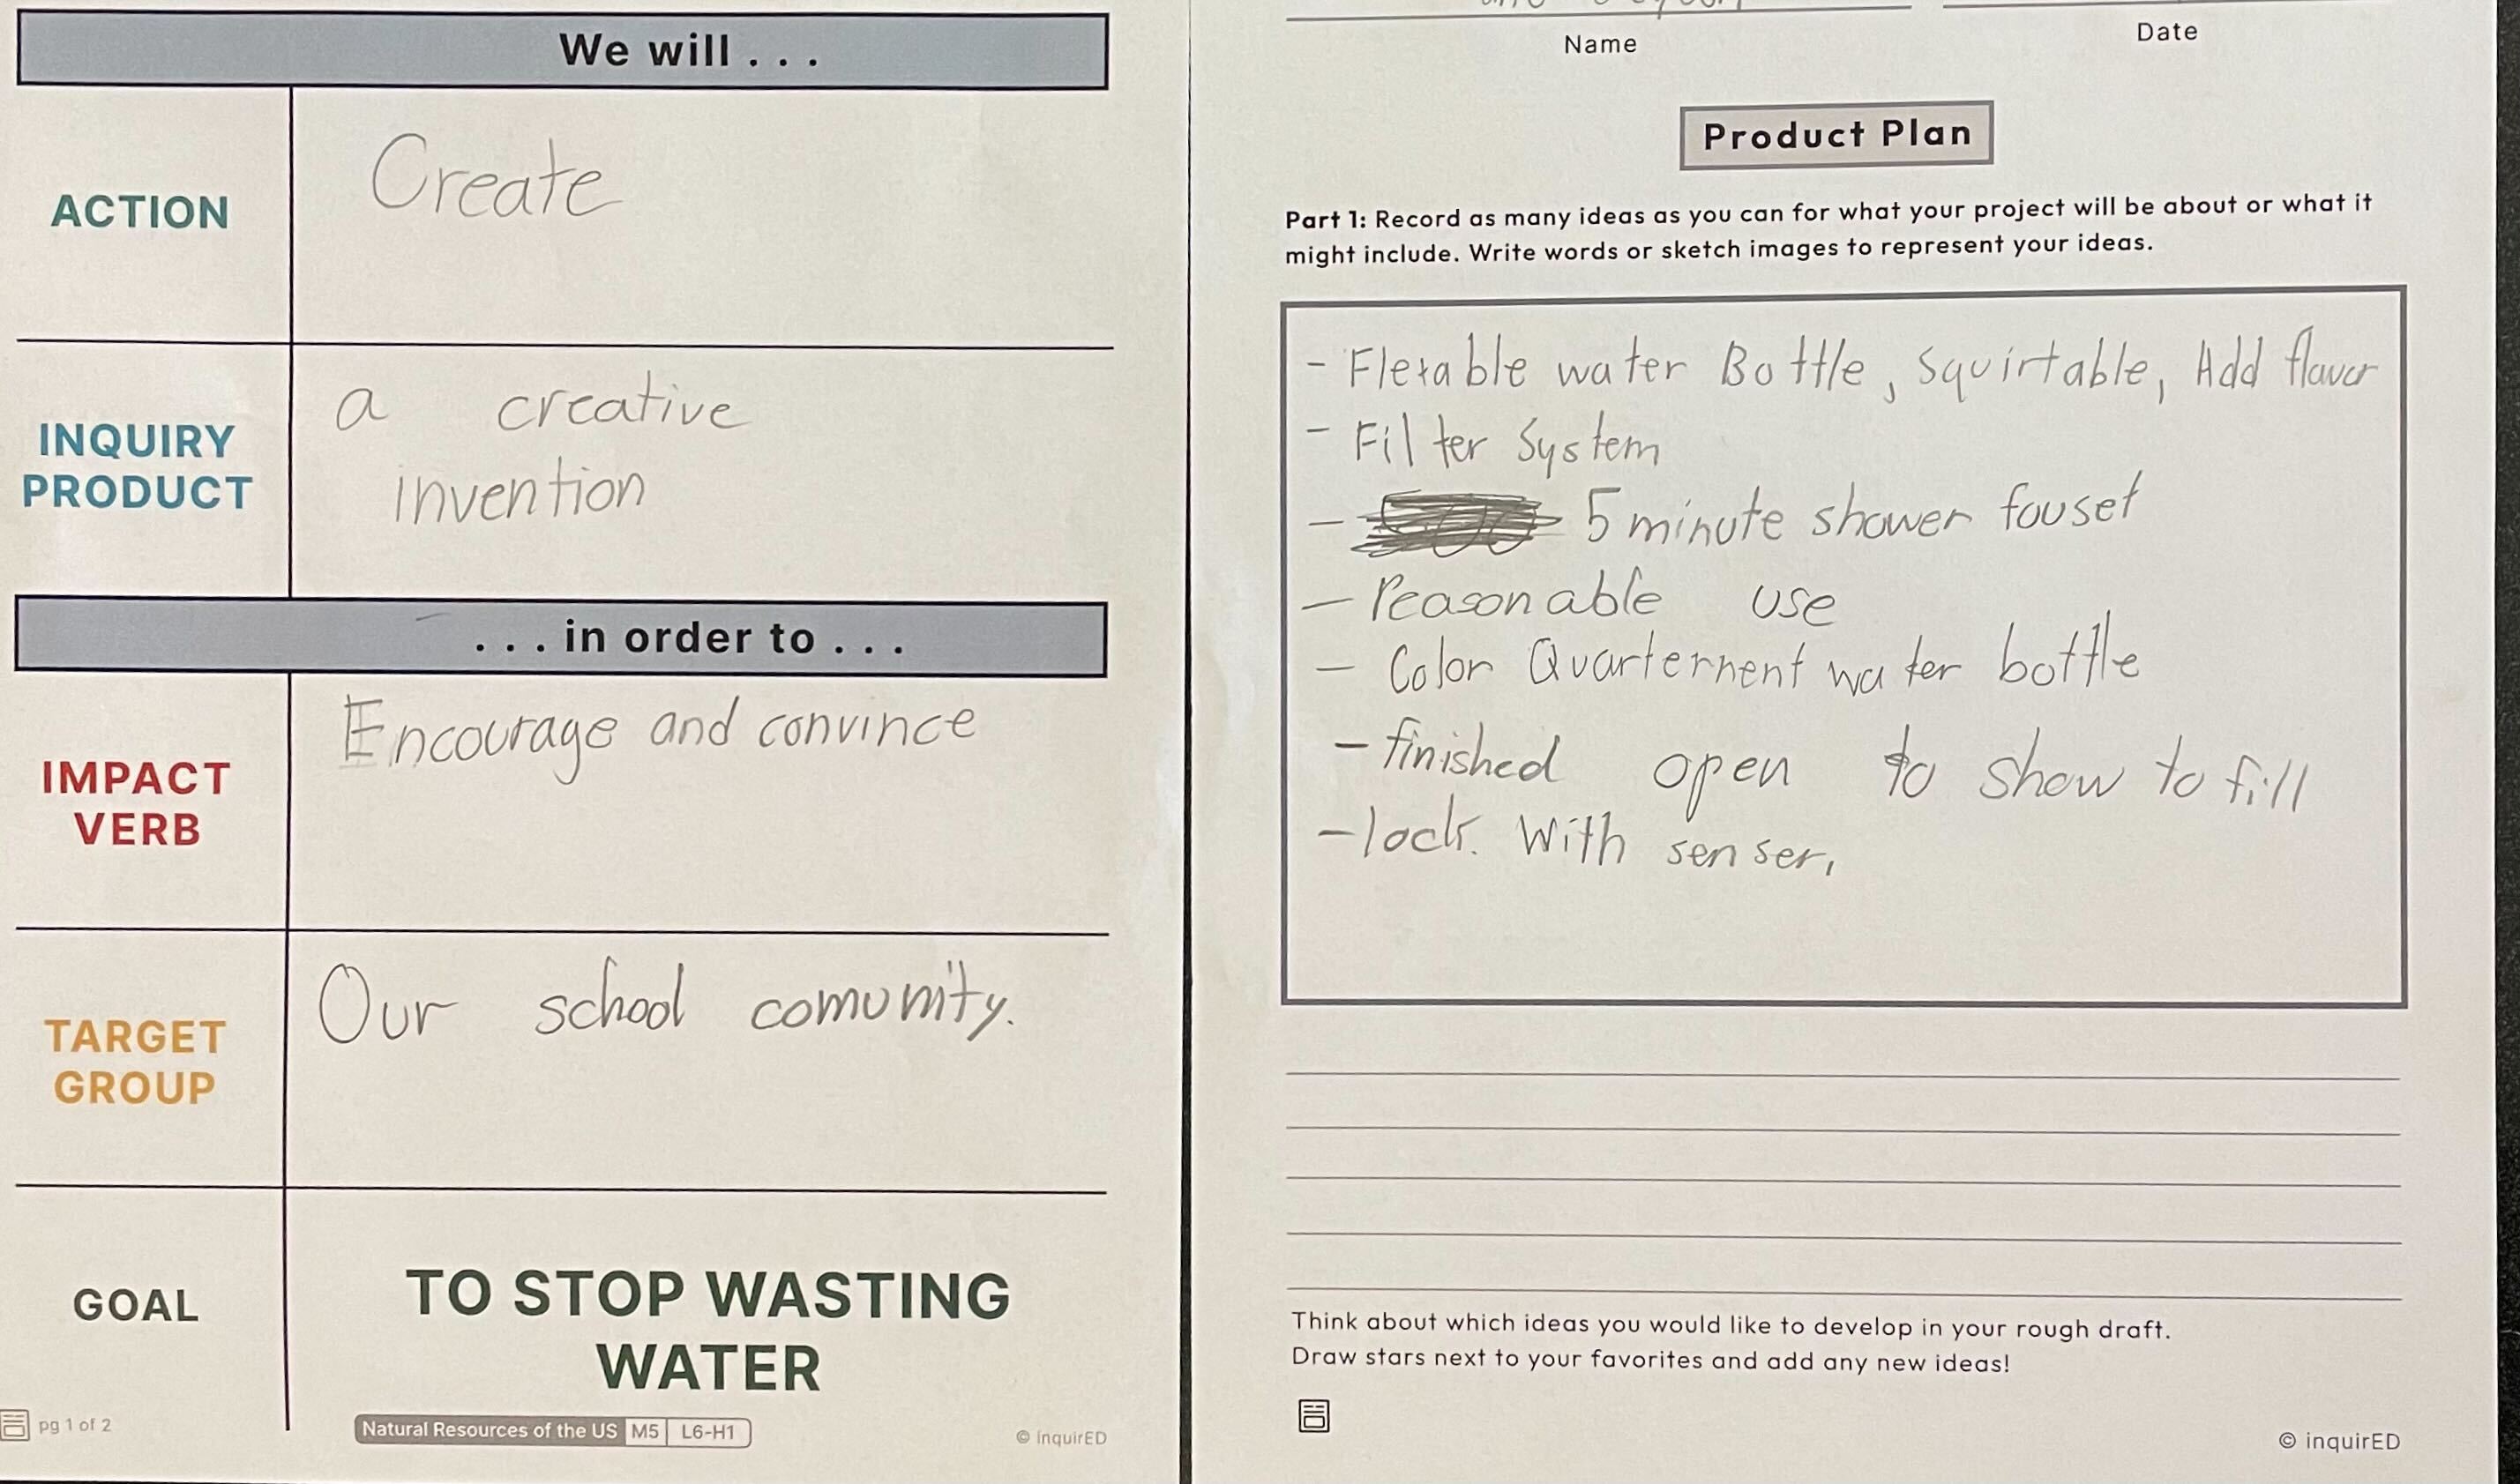 We will . . .
ACTION
Create
INQUIRY
PRODUCT
a creative
invention
. . . in order to . . .
IMPACT
VERB
Encourage and convince
TARGET
GROUP
Our school comunity.
GOAL
TO STOP WASTING
WATER
pg 1 of 2
Natural Resources of the US M5 L6-H1
© inquirED
Name
Date
Product Plan
Part 1: Record as many ideas as you can for what your project will be about or what it
might include. Write words or sketch images to represent your ideas.
- Flexable water Bottle, Squirtable, Add flavor
- Filter System
- 5 minute shower fouset
- Reasonable use
- Color Quarternent water bottle
- finished open to show to fill
- lock. With senser,
Think about which ideas you would like to develop in your rough draft.
Draw stars next to your favorites and add any new ideas!
© inquirED